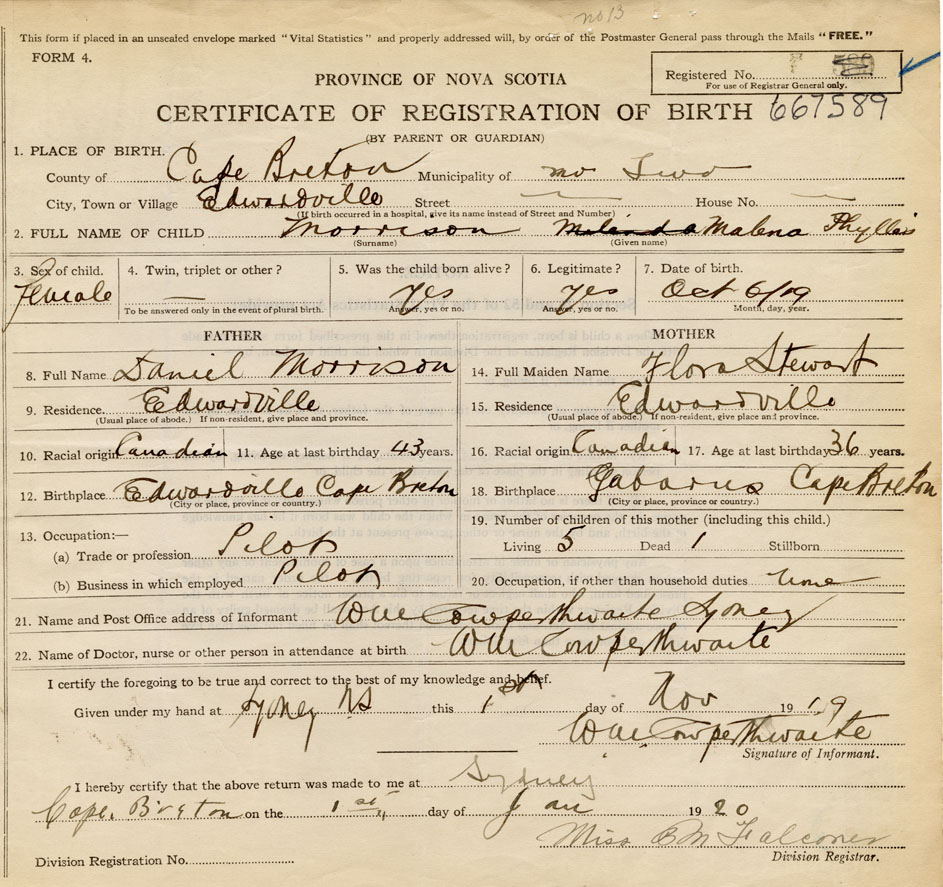 no 13
This form if placed in an unsealed envelope marked "Vital Statistics" and properly addressed will, by order of the Postmaster General pass through the Mails "FREE."
FORM 4.
Registered No.
For use of Registrar General only.
PROVINCE OF NOVA SCOTIA
CERTIFICATE OF REGISTRATION OF BIRTH 667589
(BY PARENT OR GUARDIAN)
1. PLACE OF BIRTH.
County of Cape Breton Municipality of no Two
City, Town or Village Edwardville Street — House No. —
(If birth occurred in a hospital, give its name instead of Street and Number)
2. FULL NAME OF CHILD Morrison Melinda Malena Phyllis
(Surname) (Given name)
3. Sex of child. 4. Twin, triplet or other? 5. Was the child born alive? 6. Legitimate? 7. Date of birth.
Female — Yes Yes Oct 6/19
To be answered only in the event of plural birth. Answer, yes or no. Answer, yes or no. Month, day, year.
FATHER
8. Full Name Daniel Morrison
9. Residence. Edwardville
(Usual place of abode.) If non-resident, give place and province.
10. Racial origin Canadian 11. Age at last birthday 43 years.
12. Birthplace Edwardville Cape Breton
(City or place, province or country.)
13. Occupation:—
(a) Trade or profession Pilot
(b) Business in which employed Pilot
MOTHER
14. Full Maiden Name Flora Stewart
15. Residence Edwardville
(Usual place of abode.) If non-resident, give place and province.
16. Racial origin Canadian 17. Age at last birthday 36 years.
18. Birthplace Gabarus Cape Breton
(City or place, province or country.)
19. Number of children of this mother (including this child.)
Living 5 Dead 1 Stillborn
20. Occupation, if other than household duties none
21. Name and Post Office address of Informant Wm Cowperthwaite Syney
22. Name of Doctor, nurse or other person in attendance at birth Wm Cowperthwaite
I certify the foregoing to be true and correct to the best of my knowledge and belief.
Given under my hand at Syney NS this 1st day of Nov 1919
Wm Cowperthwaite
Signature of Informant.
I hereby certify that the above return was made to me at Sydney
Cape Breton on the 1st day of Jan 1920
Miss B M Falconer
Division Registrar.
Division Registration No.